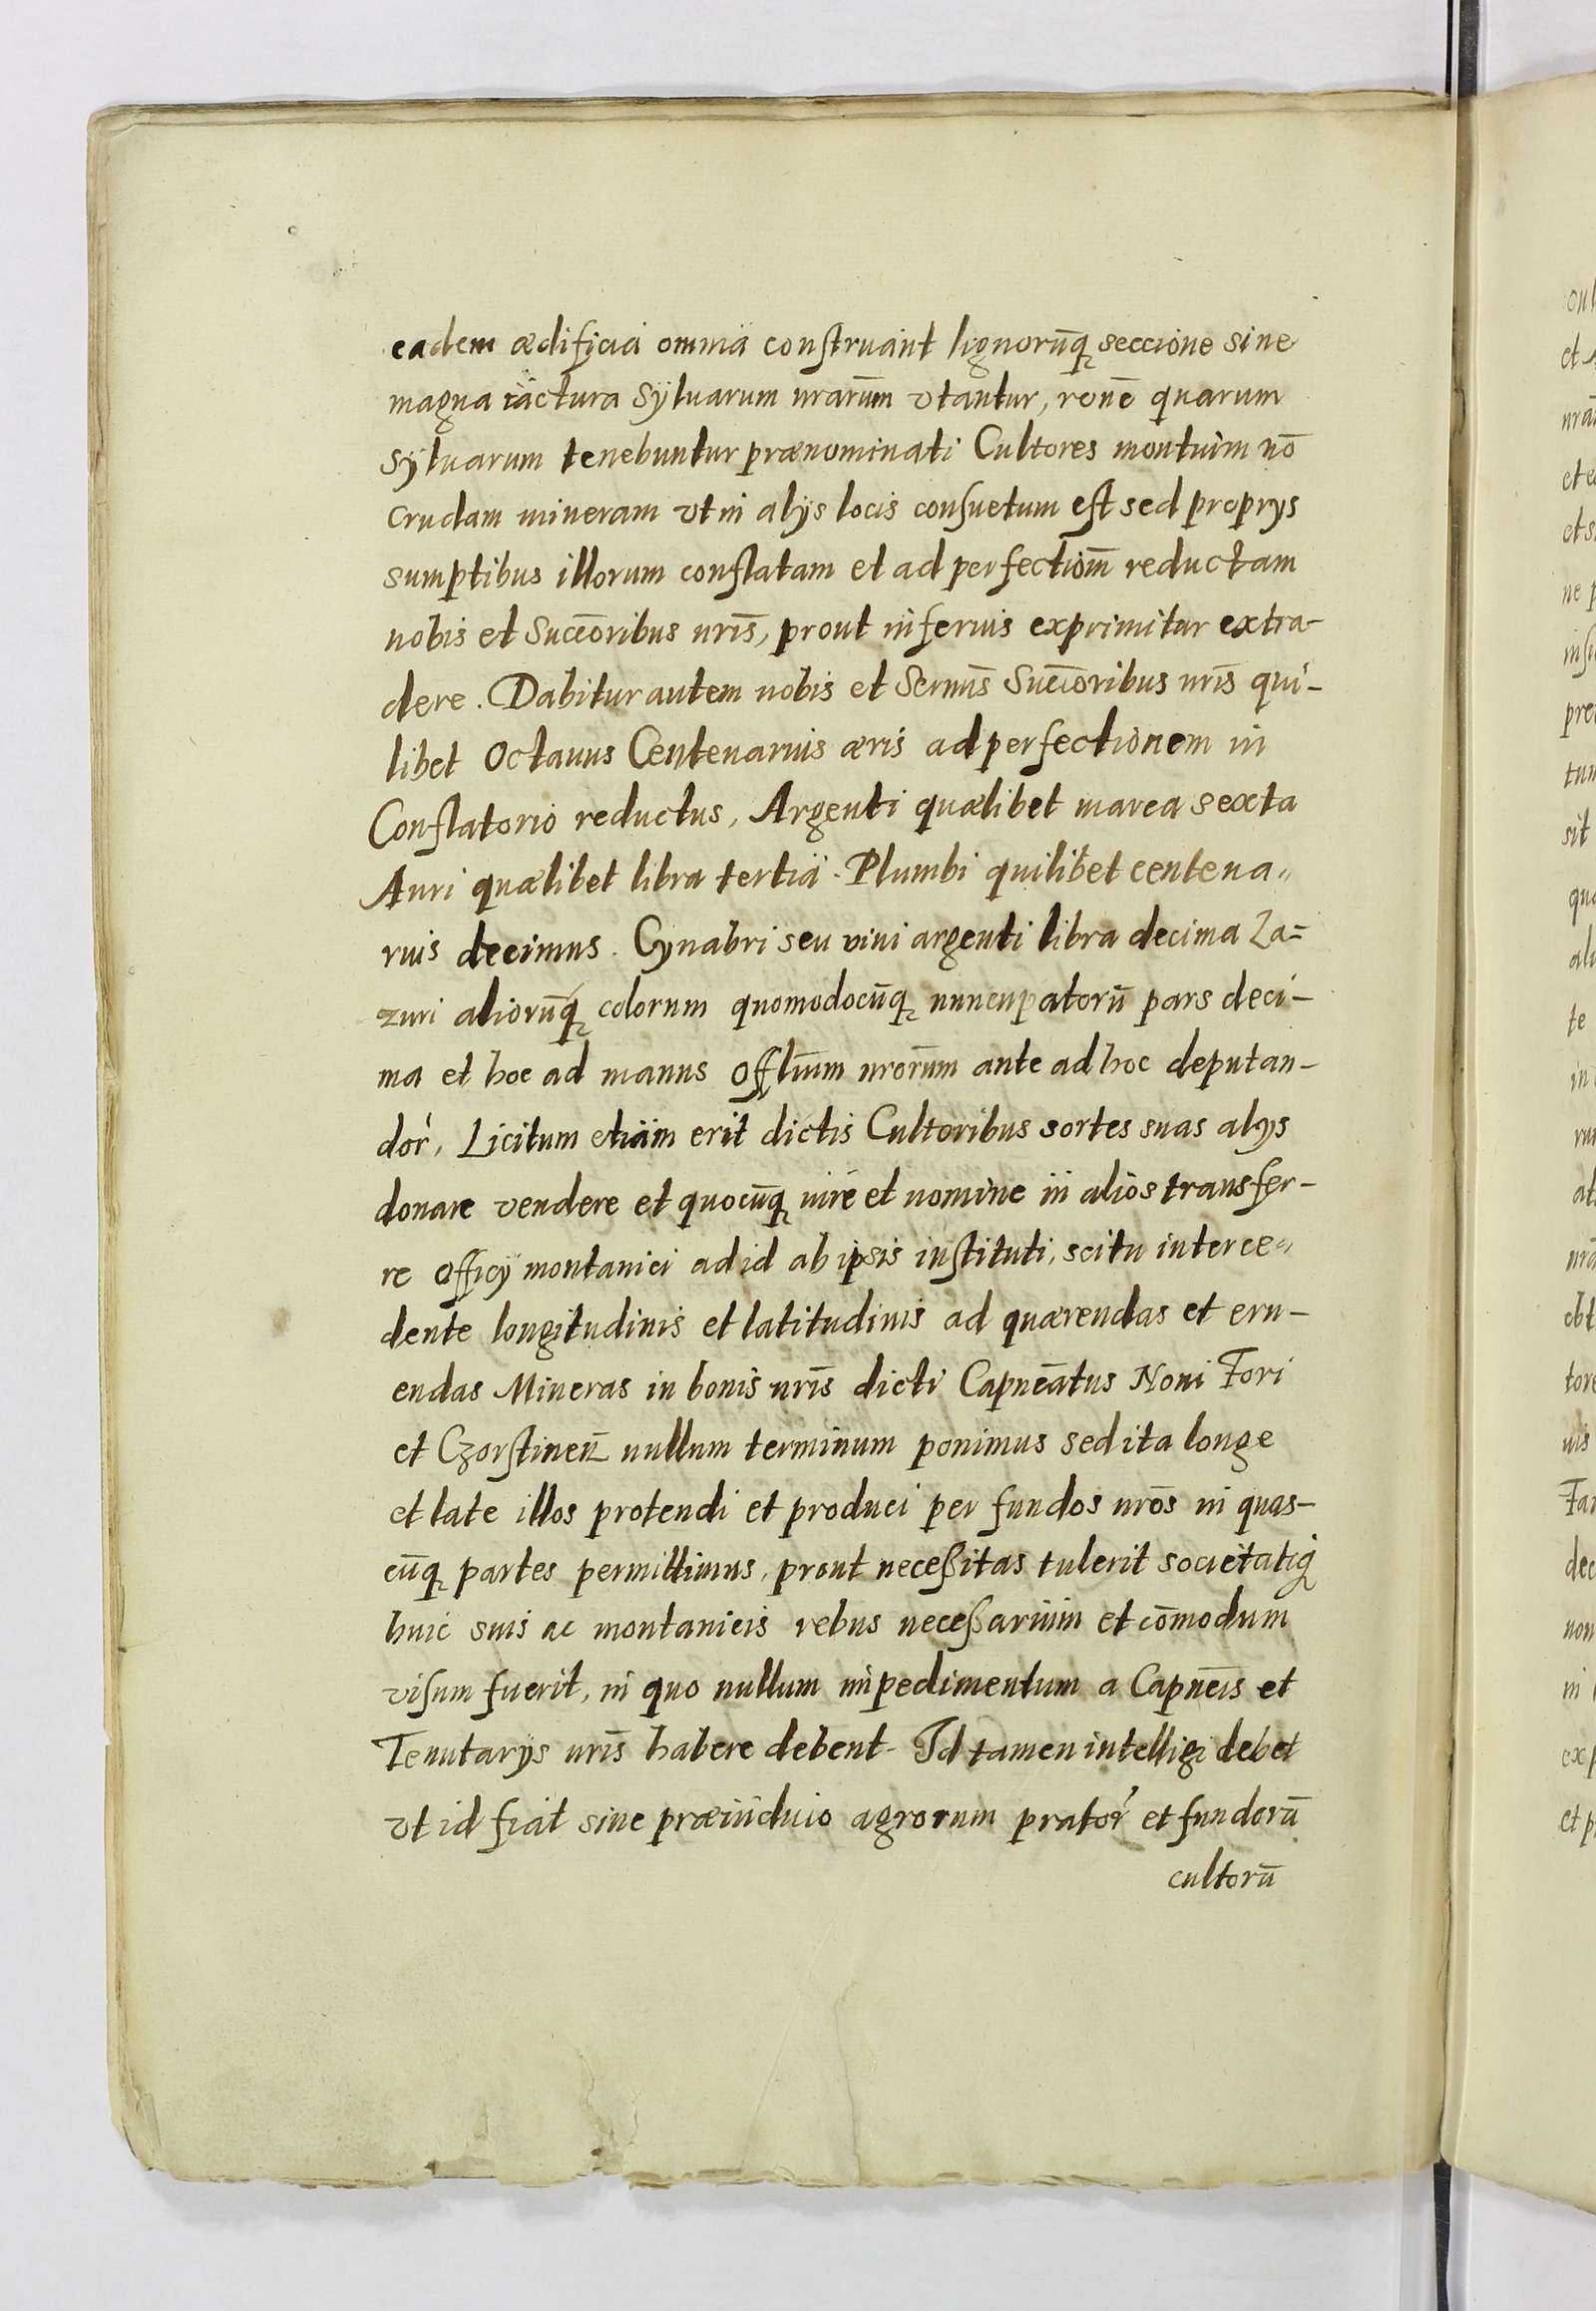 eadem ædificia omnia construant lignorūq seccione sine
magna iactura Syluarum nrarūm vtantur, ronē quarum
Syluarum tenebuntur prænominati Cultores montium nō
crudam mineram vt in alÿs locis consuetum est sed proprÿs
sumptibus illorum conflatam et ad perfectiōm reductam
nobis et Succōribus nrīs, prout inferius exprimitur extra-
dere. Dabitur autem nobis et Sermīs Succōribus nrīs qui-
libet Octauus Centenarius æris ad perfectionem in
Conflatorio reductus, Argenti quælibet marca sexta
Auri quælibet libra tertia. Plumbi quilibet centena„
rius decimus. Cynabri seu viui argenti libra decima La=
zuri aliorūq colorum quomodocūq nuncupatorū pars deci-
ma et hoc ad manus Offlīum nrorūm ante ad hoc deputan-
dor, Licitum etiam erit dictis Cultoribus sortes suas alÿs
donare vendere et quocūq iure et nomine in alios transfer-
re officÿ montanici ad id ab ipsis instituti, scitu interce„
dente longitudinis et latitudinis ad quærendas et eru-
endas Mineras in bonis nrīs dicti Capneātus Noui Fori
et Czorstinen̄ nullum terminum ponimus sed ita longe
et late illos protendi et produci per fundos nrōs in quas-
cūq partes permittimus, prout neceßitas tulerit societatiq
huic suis ac montanicis rebus neceßarium et cōmodum
visum fuerit, in quo nullum impedimentum a Capneīs et
Tenutarÿs nrīs habere debent. Id tamen intelligi debet
vt id fiat sine præiuducio agrorum prator et fundorū
cultorū